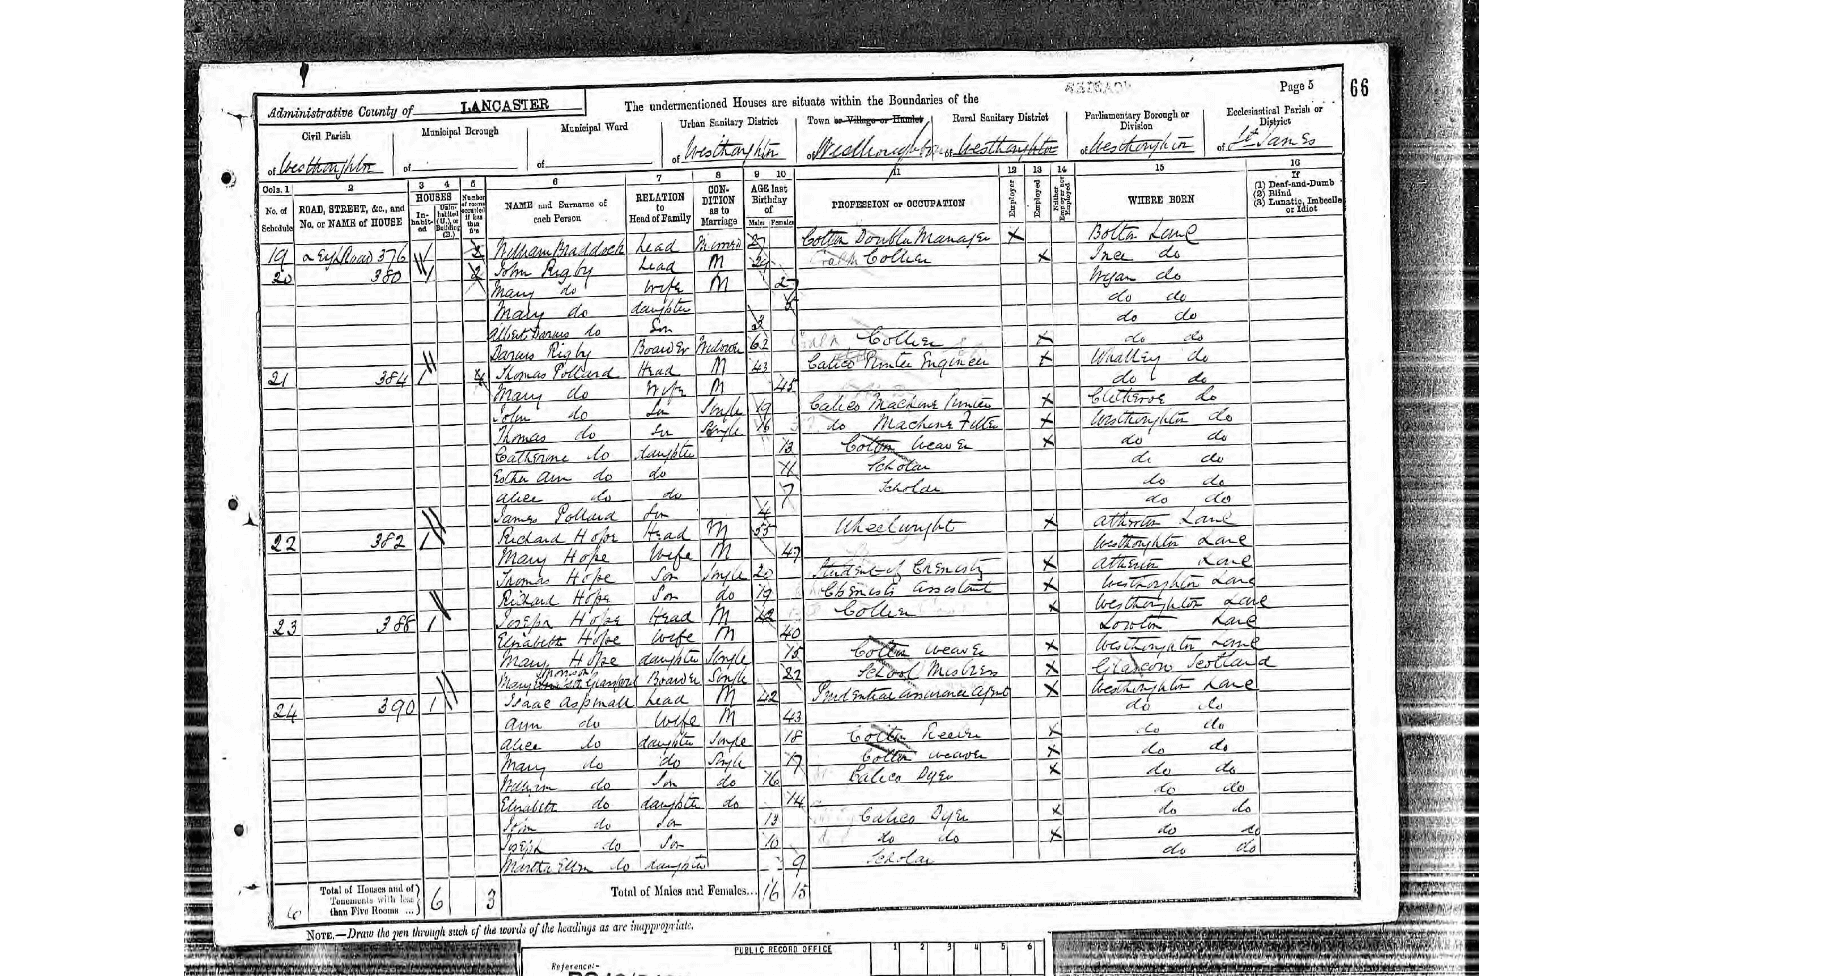 Page 5
66
Administrative County of LANCASTER The undermentioned Houses are situate within the Boundaries of the
Civil Parish
of Westhoughton
Municipal Borough
of
Municipal Ward
of
Urban Sanitary District
of Westhoughton
Town or Village or Hamlet
of Westhoughton
Rural Sanitary District
of Westhoughton
Parliamentary Borough or Division
of Westhoughton
Ecclesiastical Parish or District
of St James
Cols. 1 2 3 4 5 6 7 8 9 10 11 12 13 14 15 16
No. of Schedule
ROAD, STREET, &c., and No. or NAME of HOUSE
HOUSES
Inhabited
Uninhabited (U.), or Building (B.)
Number of rooms occupied if less than five
NAME and Surname of each Person
RELATION to Head of Family
CONDITION as to Marriage
AGE last Birthday of
Males Females
PROFESSION or OCCUPATION
Employer
Employed
Neither Employer nor Employed
WHERE BORN
If
(1) Deaf-and-Dumb
(2) Blind
(3) Lunatic, Imbecile or Idiot
19 Leigh Road 376 1 William Braddock Head Cotton Doubler Manager X Bolton Lanc
20 380 1 2 John Rigby Head M Coal Collier X Ince do
Mary do Wife M Wigan do
Mary do daughter do do
Albert Darius do Son 3 do do
Darius Rigby Boarder Widower 62 Collier X do do
21 384 1 4 Thomas Pollard Head M 43 Calico Printer Engineer X Whalley do
Mary do Wife M 45 do do
John do Son Single 19 Calico Machine Printer X Clitheroe do
Thomas do Son Single 16 do Machine Fitter X Westhoughton do
Catherine do daughter 13 Cotton Weaver X do do
Esther Ann do do 11 Scholar do do
Alice do do 7 Scholar do do
James Pollard Son 4 do do
22 382 1 Richard Hope Head M 55 Wheelwright X Atherton Lanc
Mary Hope Wife M 47 Westhoughton Lanc
Thomas Hope Son Single 20 Student of Chemistry X Atherton Lanc
Richard Hope Son do 19 Chemists Assistant X Westhoughton Lanc
23 388 1 Joseph Hope Head M 42 Collier X Westhoughton Lanc
Elizabeth Hope Wife M 40 Lowton Lanc
Mary Hope daughter Single 15 Cotton Weaver X Westhoughton Lanc
Mary Boarder Single 22 School Mistress X Glasgow Scotland
24 390 1 Isaac Aspinall Head M 42 Prudential Assurance Agent X Westhoughton Lanc
Ann do Wife M 43 do do
Alice do daughter Single 18 Cotton Reeler X do do
Mary do do Single 17 Cotton Weaver X do do
William do Son do 16 Calico Dyer X do do
Elizabeth do daughter do 14 do do
John do Son 13 Calico Dyer X do do
Joseph do Son 10 do do X do do
Martha Ellen do daughter 9 Scholar do do
6 Total of Houses and of Tenements with less than Five Rooms ... 6 3 Total of Males and Females... 16 15
NOTE.—Draw the pen through such of the words of the headings as are inappropriate.
PUBLIC RECORD OFFICE 1 2 3 4 5 6
Reference:-